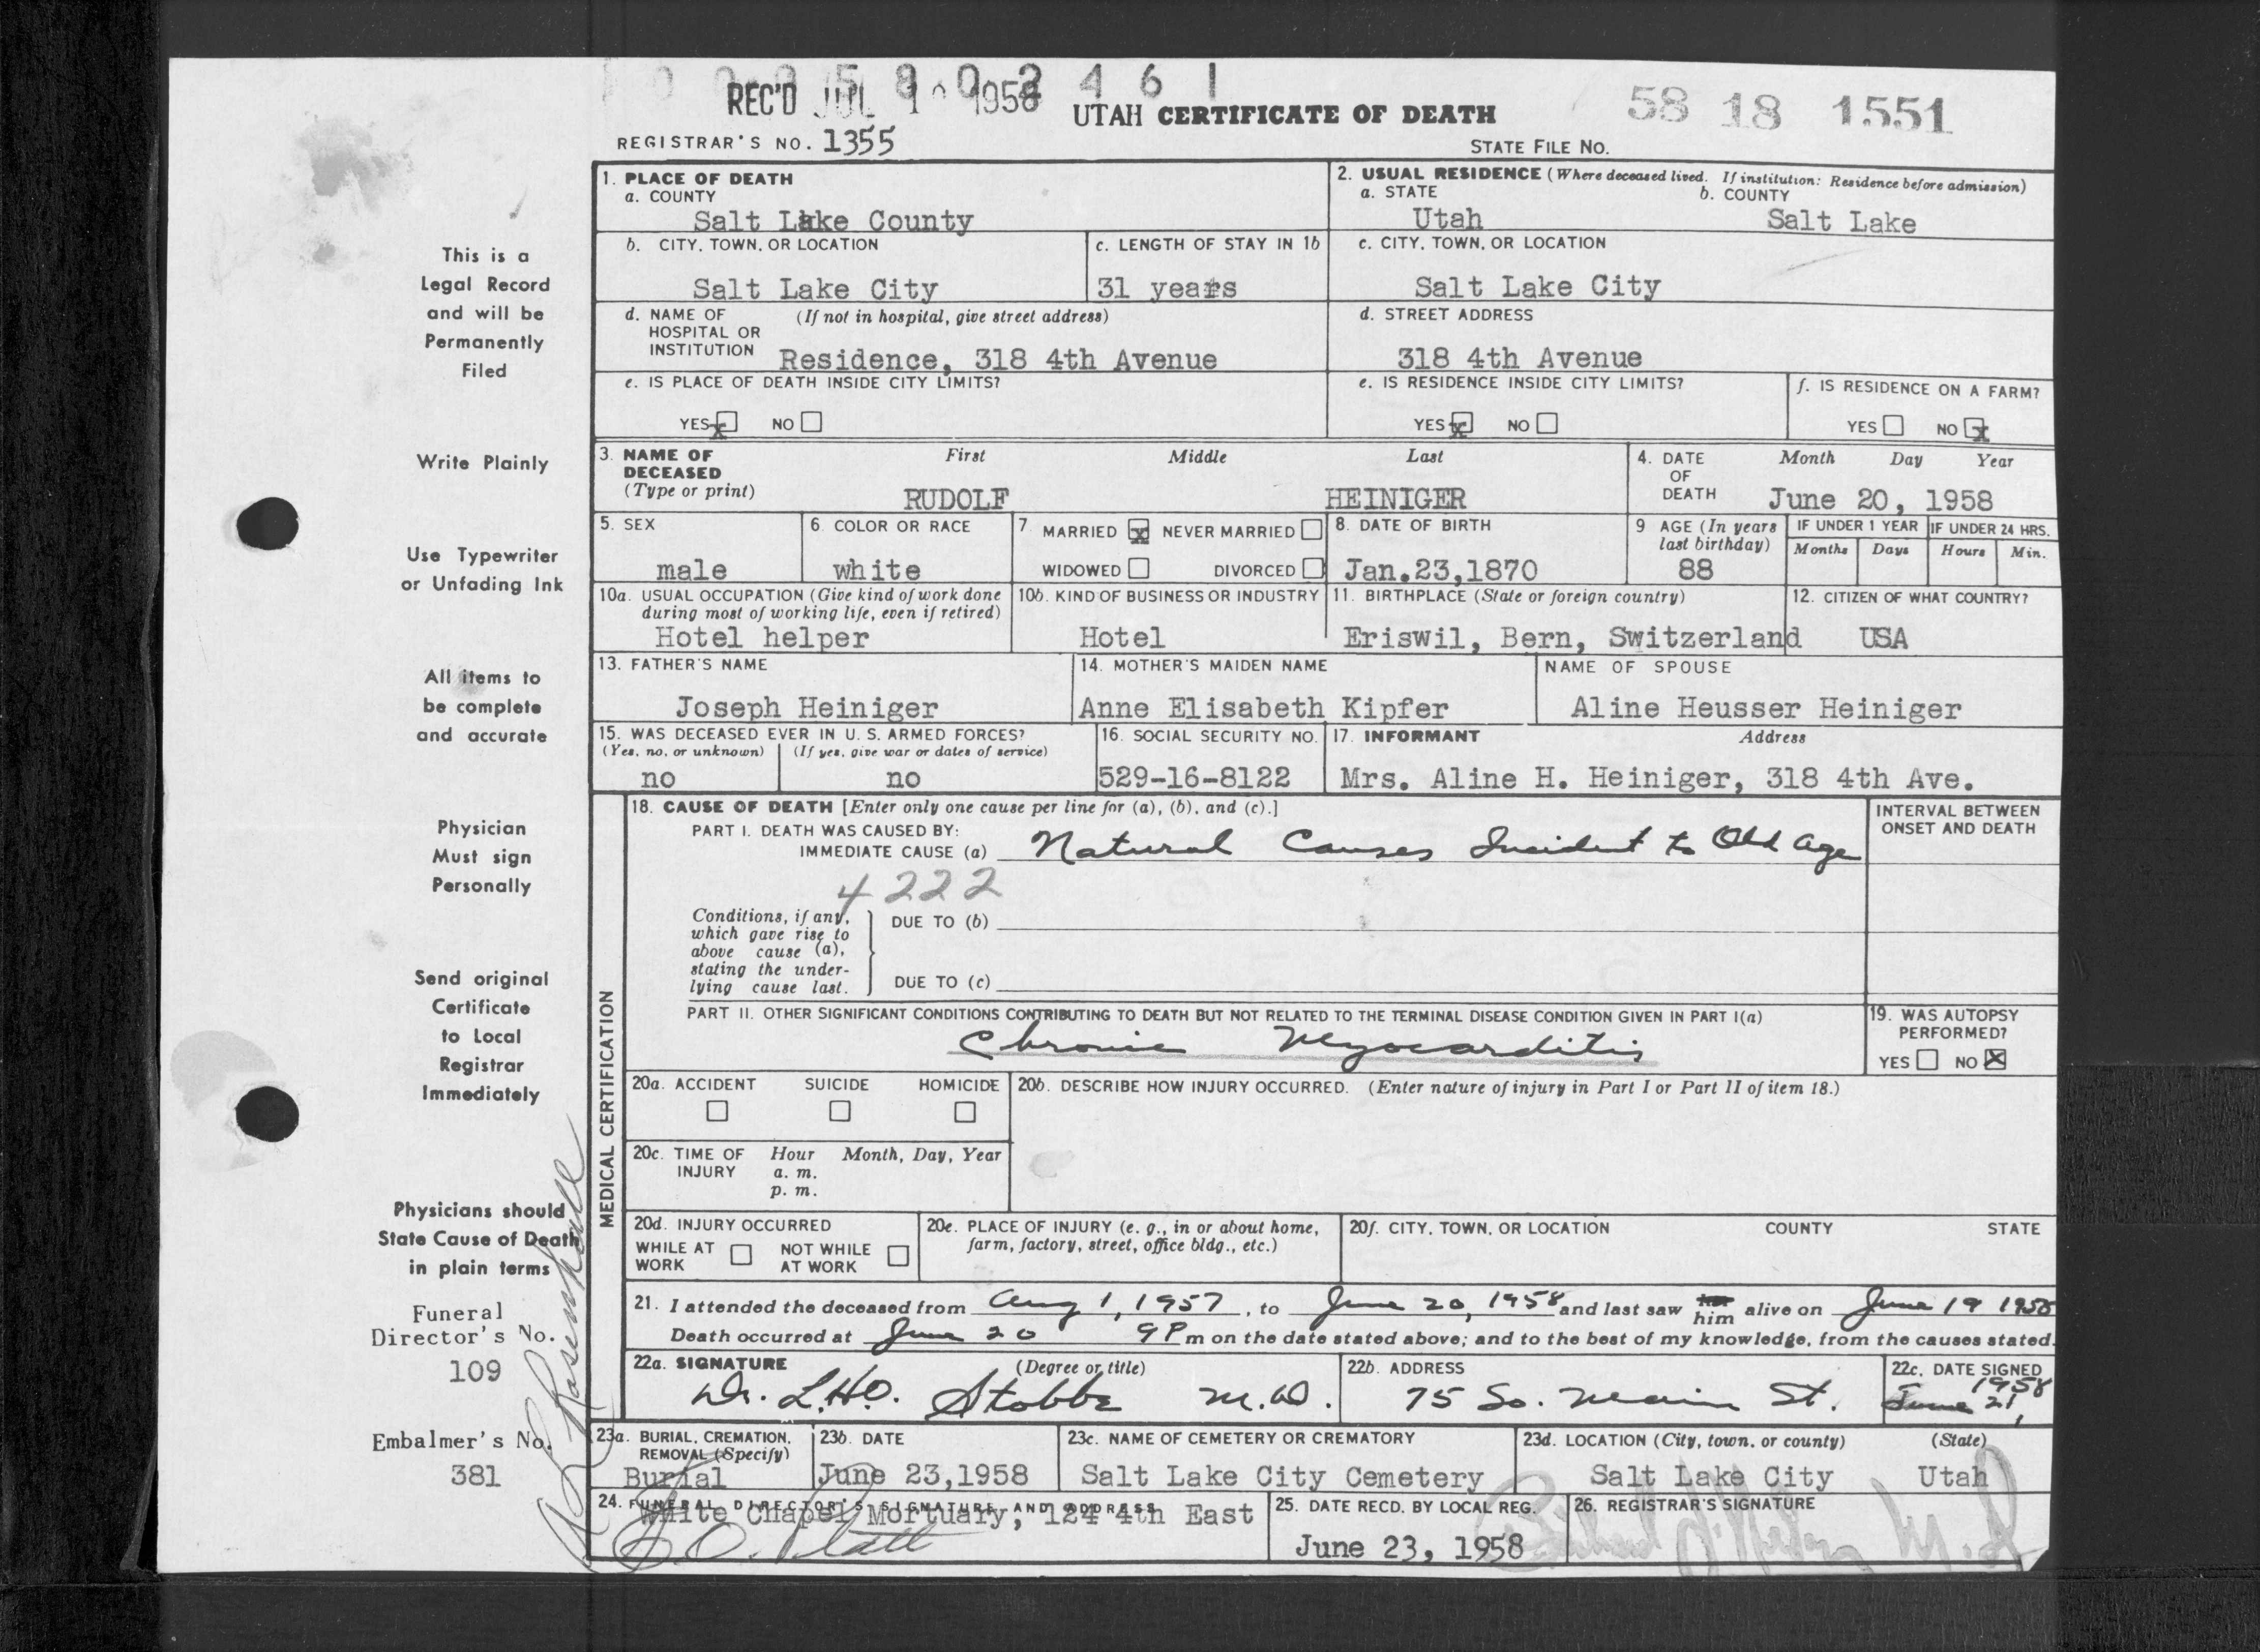 REC'D JUL 1 1958 UTAH CERTIFICATE OF DEATH 58 18 1551
REGISTRAR'S NO. 1355 STATE FILE No.
1. PLACE OF DEATH
a. COUNTY
Salt Lake County
2. USUAL RESIDENCE (Where deceased lived. If institution: Residence before admission)
a. STATE b. COUNTY
Utah Salt Lake
b. CITY, TOWN, OR LOCATION
Salt Lake City
c. LENGTH OF STAY IN 1b
31 years
c. CITY, TOWN, OR LOCATION
Salt Lake City
d. NAME OF (If not in hospital, give street address)
HOSPITAL OR
INSTITUTION Residence, 318 4th Avenue
d. STREET ADDRESS
318 4th Avenue
e. IS PLACE OF DEATH INSIDE CITY LIMITS?
YES x NO
e. IS RESIDENCE INSIDE CITY LIMITS?
YES x NO
f. IS RESIDENCE ON A FARM?
YES NO x
3. NAME OF First Middle Last
DECEASED
(Type or print) RUDOLF HEINIGER
4. DATE Month Day Year
OF
DEATH June 20, 1958
5. SEX
male
6. COLOR OR RACE
white
7. MARRIED x NEVER MARRIED
WIDOWED DIVORCED
8. DATE OF BIRTH
Jan.23,1870
9 AGE (In years
last birthday)
88
IF UNDER 1 YEAR IF UNDER 24 HRS.
Months Days Hours Min.
10a. USUAL OCCUPATION (Give kind of work done
during most of working life, even if retired)
Hotel helper
10b. KIND OF BUSINESS OR INDUSTRY
Hotel
11. BIRTHPLACE (State or foreign country)
Eriswil, Bern, Switzerland
12. CITIZEN OF WHAT COUNTRY?
USA
13. FATHER'S NAME
Joseph Heiniger
14. MOTHER'S MAIDEN NAME
Anne Elisabeth Kipfer
NAME OF SPOUSE
Aline Heusser Heiniger
15. WAS DECEASED EVER IN U. S. ARMED FORCES?
(Yes, no, or unknown) (If yes, give war or dates of service)
no no
16. SOCIAL SECURITY NO.
529-16-8122
17. INFORMANT Address
Mrs. Aline H. Heiniger, 318 4th Ave.
MEDICAL CERTIFICATION
18. CAUSE OF DEATH [Enter only one cause per line for (a), (b), and (c).]
PART I. DEATH WAS CAUSED BY:
IMMEDIATE CAUSE (a) Natural Causes Incident to Old Age
INTERVAL BETWEEN
ONSET AND DEATH
4222
Conditions, if any,
which gave rise to
above cause (a),
stating the under-
lying cause last.
DUE TO (b)
DUE TO (c)
PART II. OTHER SIGNIFICANT CONDITIONS CONTRIBUTING TO DEATH BUT NOT RELATED TO THE TERMINAL DISEASE CONDITION GIVEN IN PART I(a)
Chronic Myocarditis
19. WAS AUTOPSY
PERFORMED?
YES NO x
20a. ACCIDENT SUICIDE HOMICIDE
20b. DESCRIBE HOW INJURY OCCURRED. (Enter nature of injury in Part I or Part II of item 18.)
20c. TIME OF Hour Month, Day, Year
INJURY a. m.
p. m.
20d. INJURY OCCURRED
WHILE AT NOT WHILE
WORK AT WORK
20e. PLACE OF INJURY (e. g., in or about home,
farm, factory, street, office bldg., etc.)
20f. CITY, TOWN, OR LOCATION COUNTY STATE
21. I attended the deceased from Aug 1, 1957, to June 20, 1958 and last saw her him alive on June 19 1958
Death occurred at June 20 9 P m on the date stated above; and to the best of my knowledge, from the causes stated.
22a. SIGNATURE (Degree or title)
Dr. L.H.O. Stobbe M.D.
22b. ADDRESS
75 So. Main St.
22c. DATE SIGNED
1958
June 21,
23a. BURIAL, CREMATION,
REMOVAL (Specify)
Burial
23b. DATE
June 23,1958
23c. NAME OF CEMETERY OR CREMATORY
Salt Lake City Cemetery
23d. LOCATION (City, town, or county) (State)
Salt Lake City Utah
24. FUNERAL DIRECTOR'S SIGNATURE AND ADDRESS
White Chapel Mortuary, 124 4th East
25. DATE RECD. BY LOCAL REG.
June 23, 1958
26. REGISTRAR'S SIGNATURE
This is a
Legal Record
and will be
Permanently
Filed
Write Plainly
Use Typewriter
or Unfading Ink
All items to
be complete
and accurate
Physician
Must sign
Personally
Send original
Certificate
to Local
Registrar
Immediately
Physicians should
State Cause of Death
in plain terms
Funeral
Director's No.
109
Embalmer's No.
381